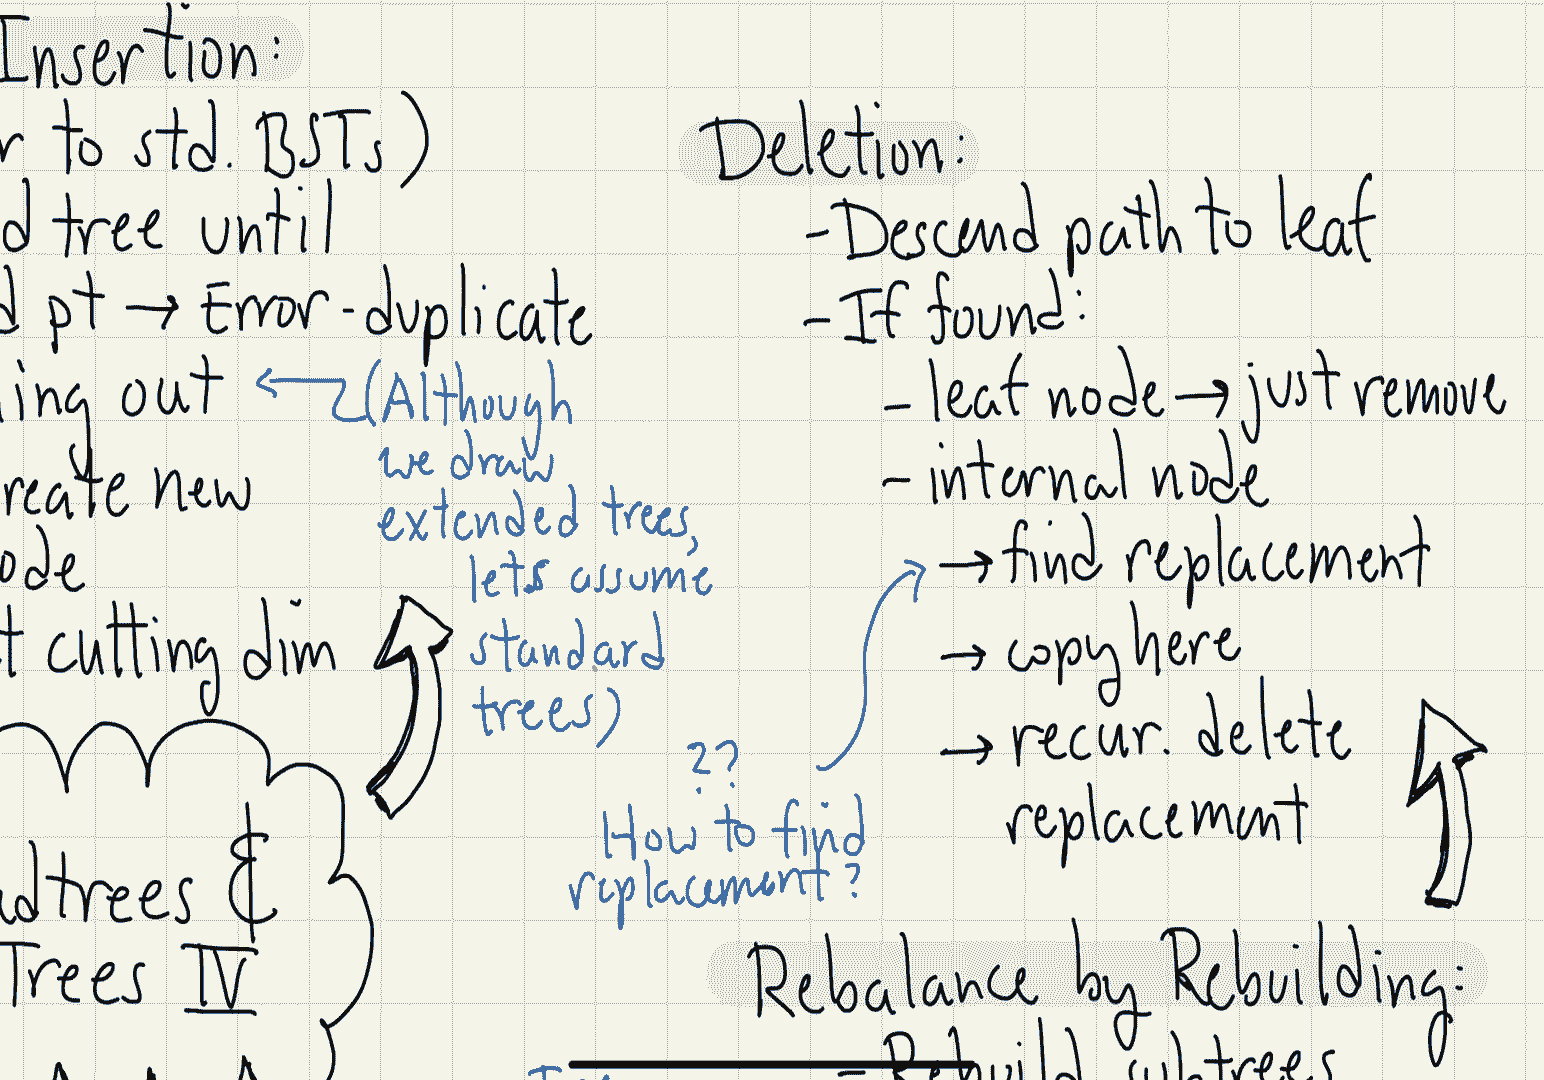 Insertion:
r to std. BSTs)
d tree until
d pt → Error - duplicate
ing out
reate new
ode
t cutting dim
(Although
we draw
extended trees,
lets assume
standard
trees)
adtrees &
Trees IV
Deletion:
- Descend path to leaf
- If found:
- leaf node → just remove
- internal node
→ find replacement
→ copy here
→ recur. delete
replacement
??
How to find
replacement?
Rebalance by Rebuilding:
- Rebuild subtrees